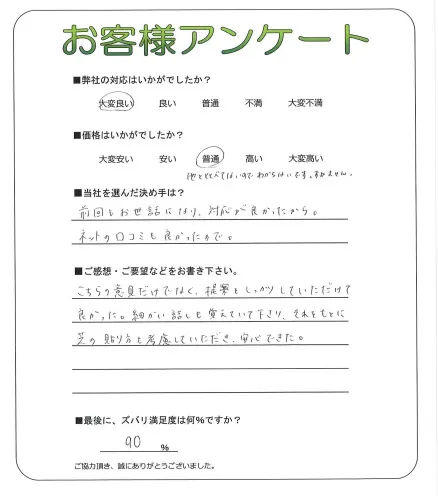 お客様アンケート
■弊社の対応はいかがでしたか？
大変良い 良い 普通 不満 大変不満
■価格はいかがでしたか？
大変安い 安い 普通 高い 大変高い
他とくらべてないのでわからないです。すみません。
■当社を選んだ決め手は？
前回もお世話になり、対応が良かったから。
ネットの口コミも良かったので。
■ご感想・ご要望などをお書き下さい。
こちらの意見だけでなく、提案もしっかりしていただけて
良かった。細かい話しも覚えていて下さり、それをもとに
芝の貼り方も考慮していただき、安心できた。
■最後に、ズバリ満足度は何%ですか？
90 %
ご協力頂き、誠にありがとうございました。